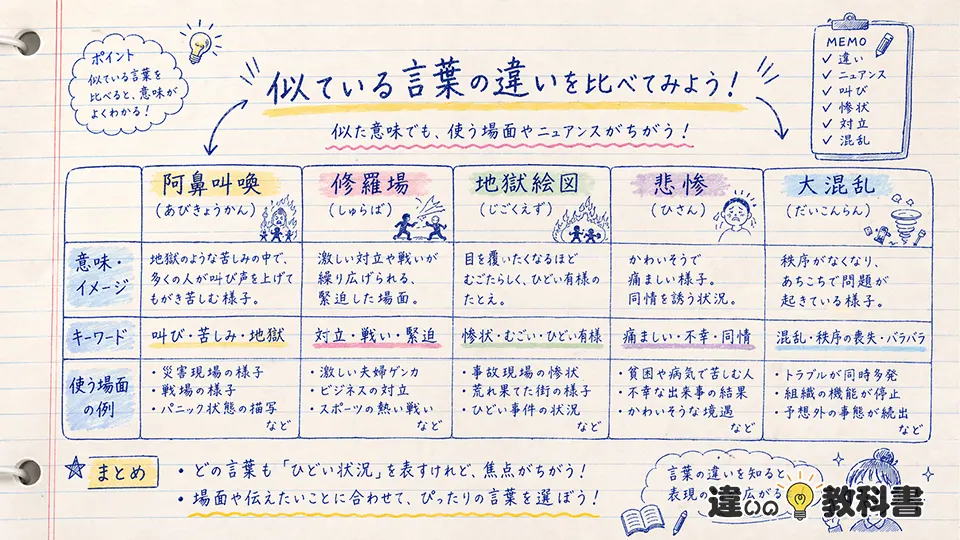 ポイント
似ている言葉を
比べると、意味が
よくわかる!
似ている言葉の違いを比べてみよう!
似た意味でも、使う場面やニュアンスがちがう!
MEMO
✓ 違い
✓ ニュアンス
✓ 叫び
✓ 惨状
✓ 対立
✓ 混乱
阿鼻叫喚
(あびきょうかん)
修羅場
(しゅらば)
地獄絵図
(じごくえず)
悲惨
(ひさん)
大混乱
(だいこんらん)
意味・
イメージ
地獄のような苦しみの中で、
多くの人が叫び声を上げて
もがき苦しむ様子。
激しい対立や戦いが
繰り広げられる、
緊迫した場面。
目を覆いたくなるほど
むごたらしく、ひどい有様の
たとえ。
かわいそうで
痛ましい様子。
同情を誘う状況。
秩序がなくなり、
あちこちで問題が
起きている様子。
キーワード
叫び・苦しみ・地獄
対立・戦い・緊迫
惨状・むごい・ひどい有様
痛ましい・不幸・同情
混乱・秩序の喪失・バラバラ
使う場面
の例
・災害現場の様子
・戦場の様子
・パニック状態の描写
など
・激しい夫婦ゲンカ
・ビジネスの対立
・スポーツの熱い戦い
など
・事故現場の惨状
・荒れ果てた街の様子
・ひどい事件の状況
など
・貧困や病気で苦しむ人
・不幸な出来事の結果
・かわいそうな境遇
など
・トラブルが同時多発
・組織の機能が停止
・予想外の事態が続出
など
まとめ
・どの言葉も「ひどい状況」を表すけれど、焦点がちがう!
・場面や伝えたいことに合わせて、ぴったりの言葉を選ぼう!
言葉の違いを知ると
表現の 広がる
違いの教科書